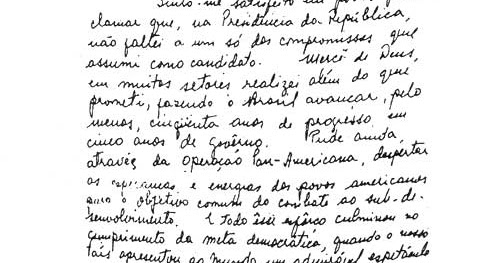 Sinto-me satisfeito em po
clamar que, na Presidência da República,
não faltei a um só dos compromissos que
assumi como candidato. Mercê de Deus,
em muitos setores, realizei além do que
prometi, fazendo o Brasil avançar, pelo
menos, cinqüenta anos de progresso em
cinco anos de govêrno. Pude ainda,
através da Operação Pan-Americana, despertar
as esperanças e energias dos povos americanos
para o objetivo comum do combate ao sub-de-
senvolvimento. E todo êsse esfôrço culminou no
cumprimento da meta democrática, quando o nosso
País apresentou ao mundo um admirável espetáculo